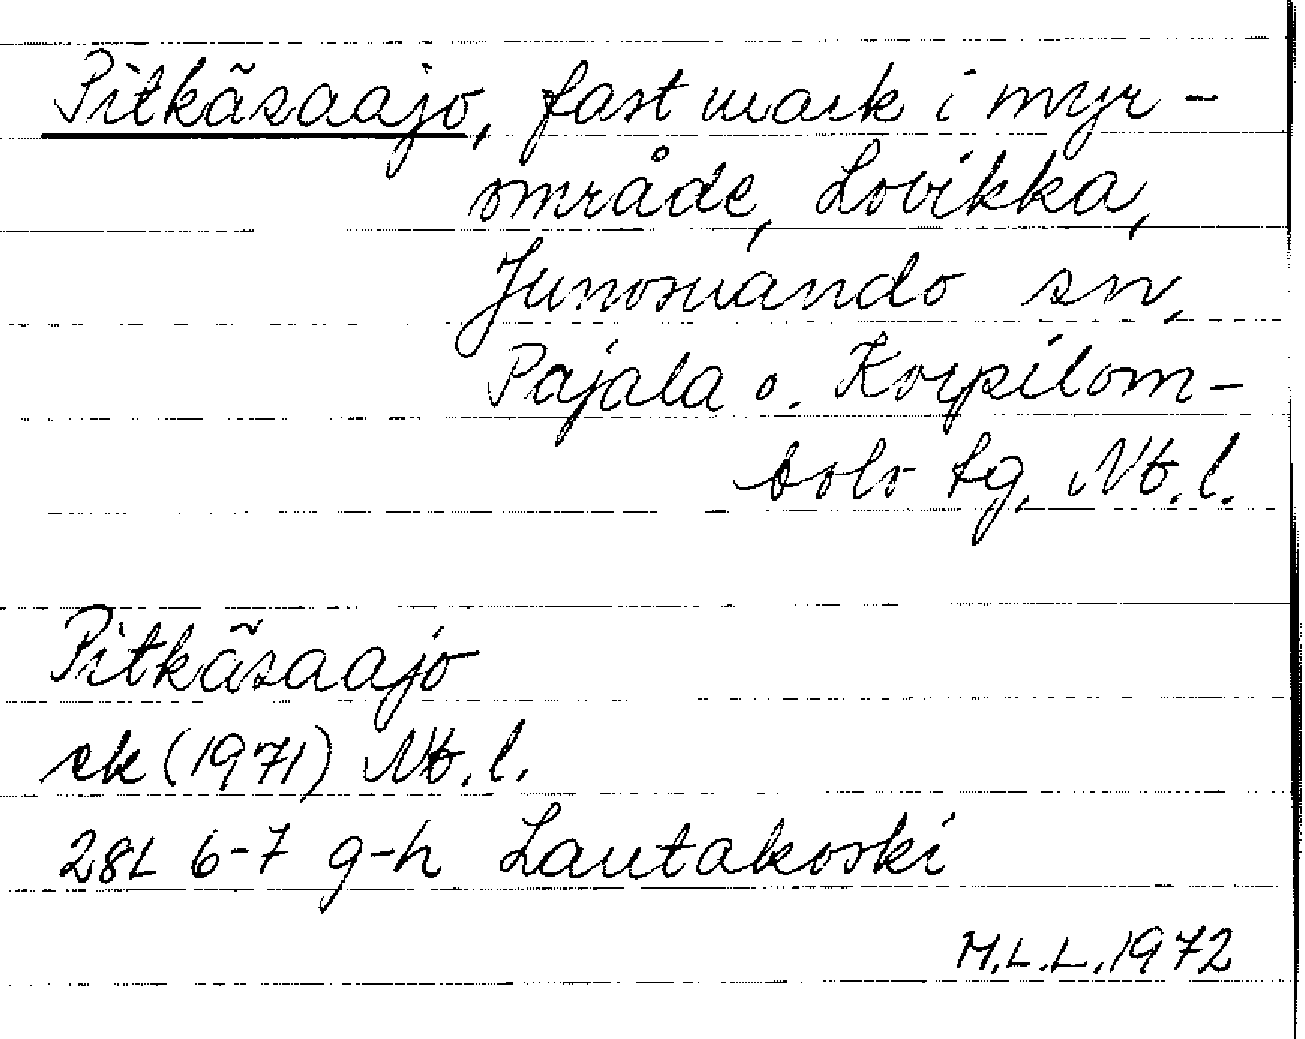 Pitkäsaajo, fast mark i myr-
område, Lovikka,
Junosuando sn,
Pajala o. Korpilom-
bolo tg, Nb.l.
Pitkäsaajo
ek (1971) Nb.l.
28L 6-7 g-h Lautakoski
M.L.L. 1972